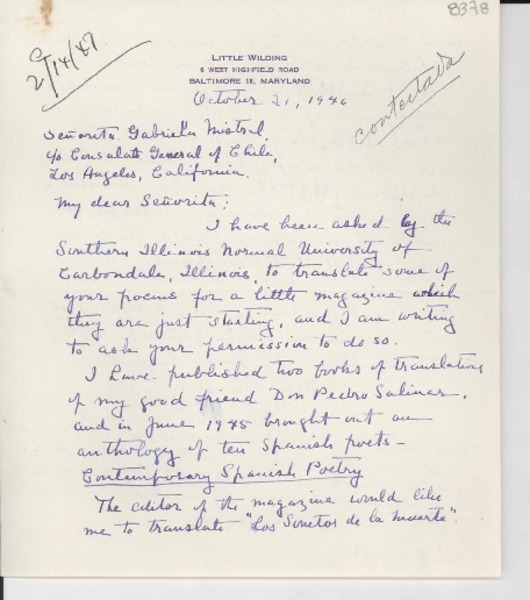 8378
2/14/47
LITTLE WILDING
6 WEST HIGHFIELD ROAD
BALTIMORE 18, MARYLAND
contestada
October 21, 1946
Señorita Gabriella Mistral,
c/o Consulate General of Chile,
Los Angeles, California.
My dear Señorita:
I have been asked by the
Southern Illinois Normal University of
Carbondale, Illinois, to translate some of
your poems for a little magazine which
they are just starting, and I am writing
to ask your permission to do so.
I have published two books of translations
of my good friend Don Pedro Salinas,
and in June 1945 brought out an
anthology of ten Spanish poets -
Contemporary Spanish Poetry
The editor of the magazine would like
me to translate "Los Sonetos de la Muerte".